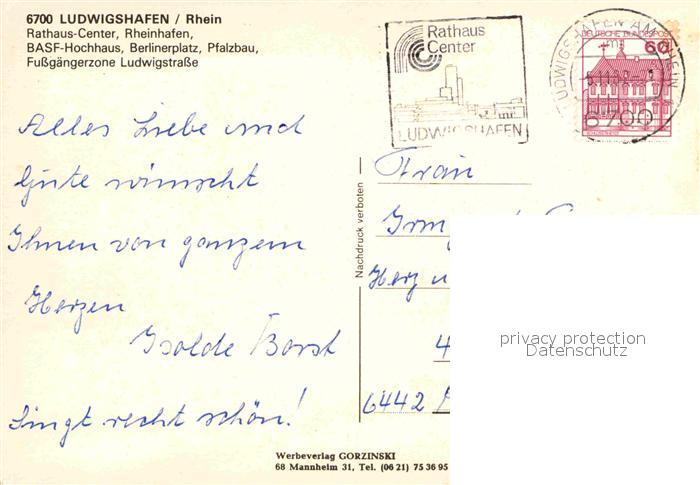 6700 LUDWIGSHAFEN / Rhein
Rathaus-Center, Rheinhafen,
BASF-Hochhaus, Berlinerplatz, Pfalzbau,
Fußgängerzone Ludwigstraße
Rathaus
Center
LUDWIGSHAFEN
LUDWIGSHAFEN AM RHEIN
DEUTSCHE BUNDESPOST
60
6700
Alles Liebe und
Gute wünscht
Ihnen von ganzem
Herzen
Isolde Borst
Singt recht schön!
Nachdruck verboten
Frau
Irmg
Herz
4
6442
privacy protection
Datenschutz
Werbeverlag GORZINSKI
68 Mannheim 31, Tel. (06 21) 75 36 95